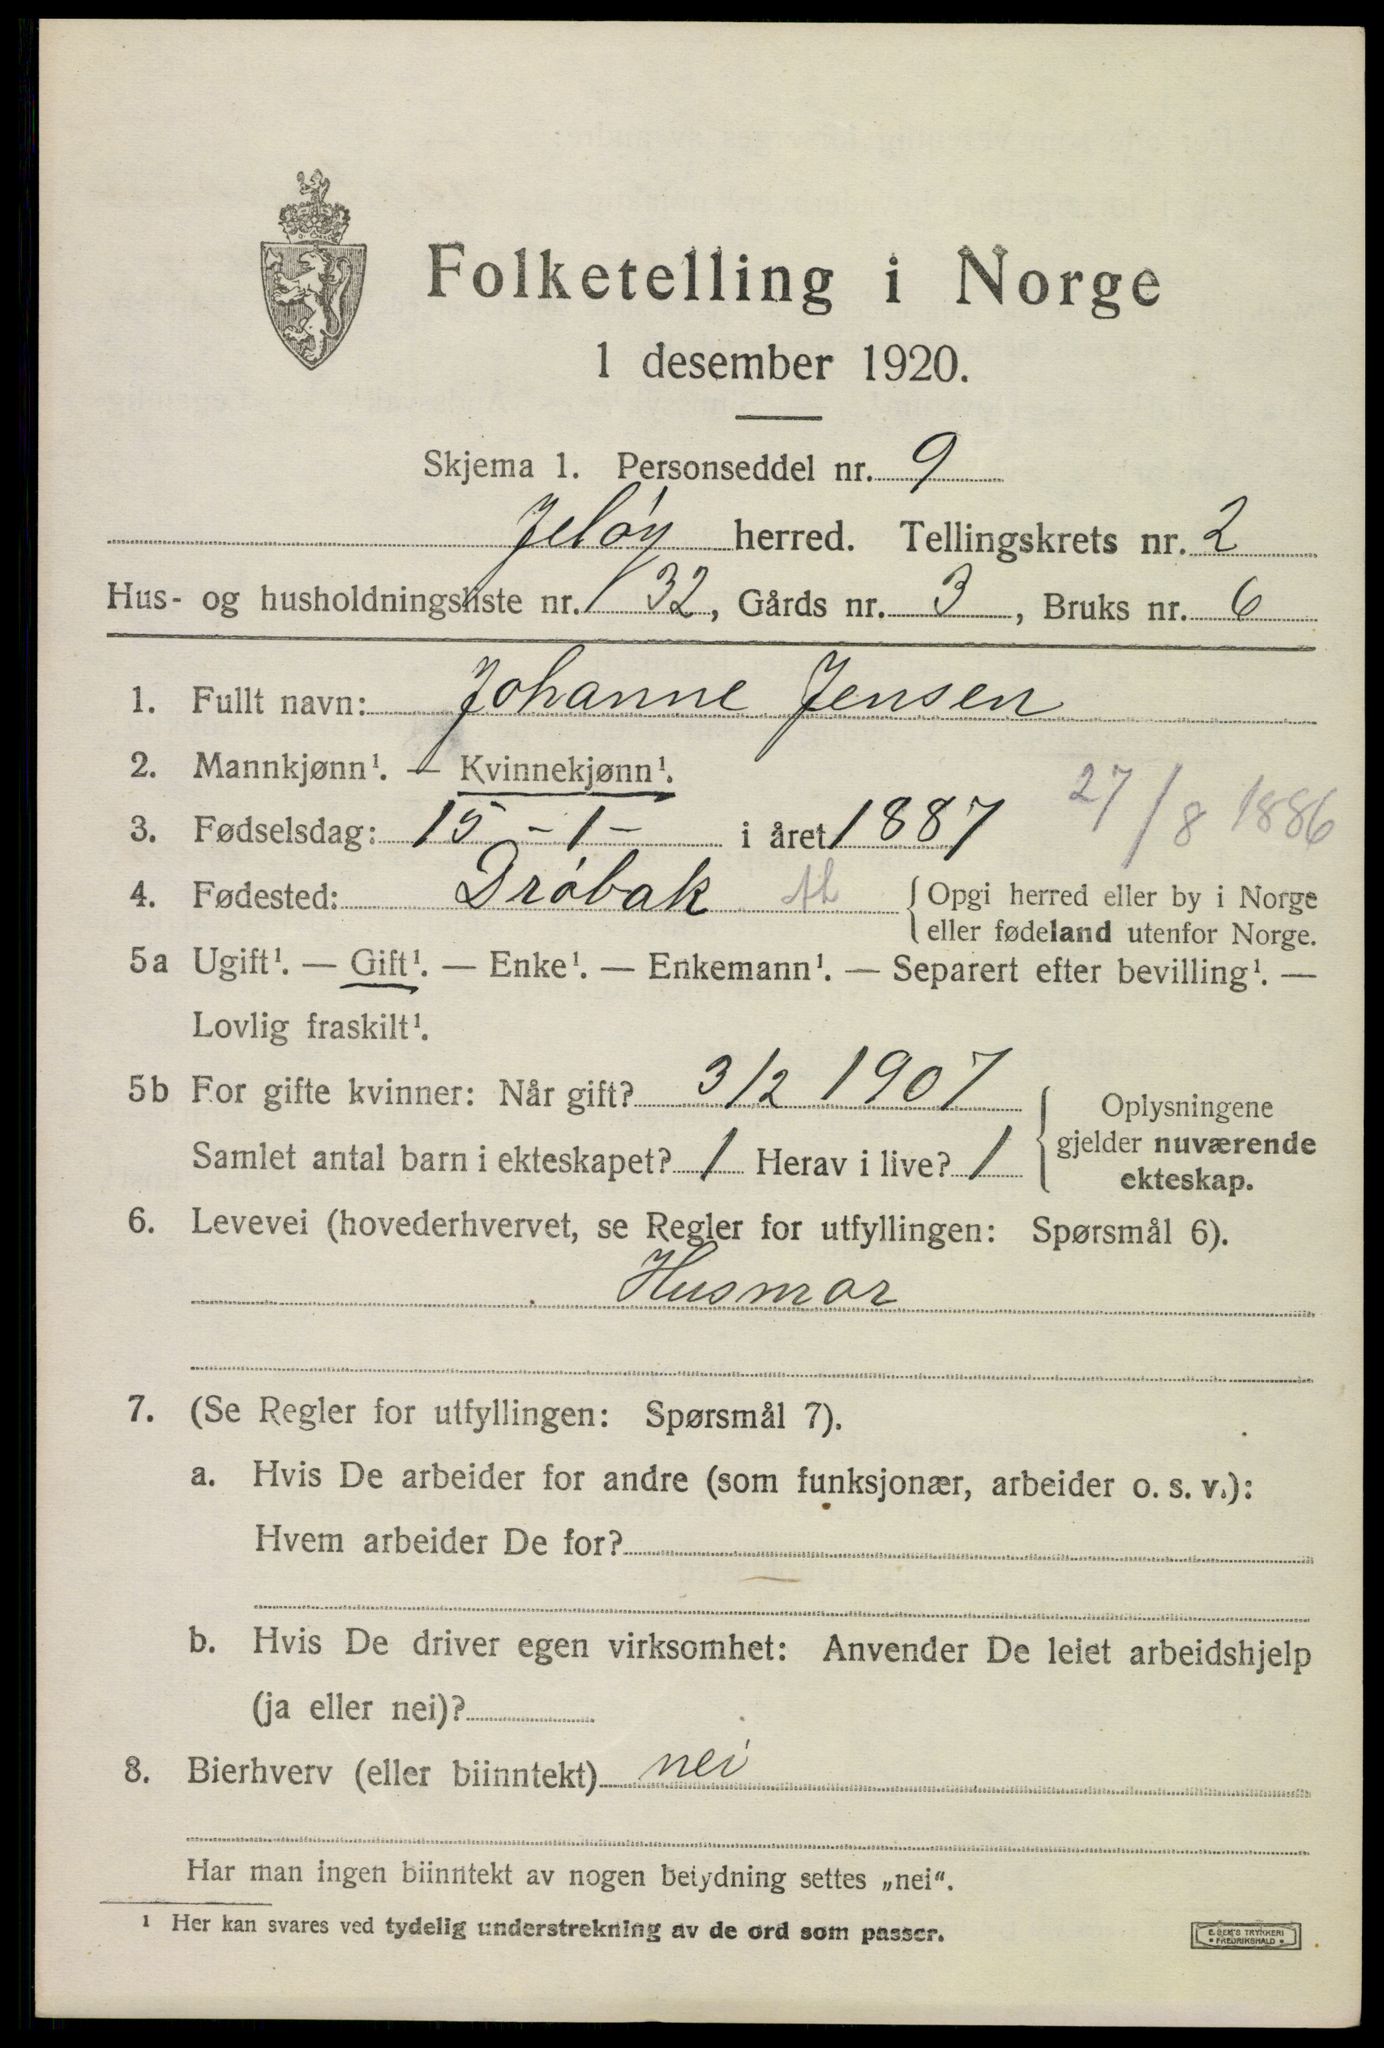 Folketelling i Norge
1 desember 1920.
Skjema 1. Personseddel nr. 9
Jeløy herred. Tellingskrets nr. 2
Hus- og husholdningsliste nr. 132, Gårds nr. 3, Bruks nr. 6
1. Fullt navn: Johanne Jensen
2. Mannkjønn¹. — Kvinnekjønn¹.
3. Fødselsdag: 15 - 1 - i året 1887 27/8 1886
4. Fødested: Drøbak { Opgi herred eller by i Norge
eller fødeland utenfor Norge.
5a Ugift¹. — Gift¹. — Enke¹. — Enkemann¹. — Separert efter bevilling¹. —
Lovlig fraskilt¹.
5b For gifte kvinner: Når gift? 3/2 1907 { Oplysningene
Samlet antal barn i ekteskapet? 1 Herav i live? 1 gjelder nuværende
ekteskap.
6. Levevei (hovederhvervet, se Regler for utfyllingen: Spørsmål 6).
Husmor
7. (Se Regler for utfyllingen: Spørsmål 7).
a. Hvis De arbeider for andre (som funksjonær, arbeider o. s. v.):
Hvem arbeider De for?
b. Hvis De driver egen virksomhet: Anvender De leiet arbeidshjelp
(ja eller nei)?
8. Bierhverv (eller biinntekt) nei
Har man ingen biinntekt av nogen betydning settes „nei“.
¹ Her kan svares ved tydelig understrekning av de ord som passer.
E. SEM'S TRYKKERI
• FREDRIKSHALD •